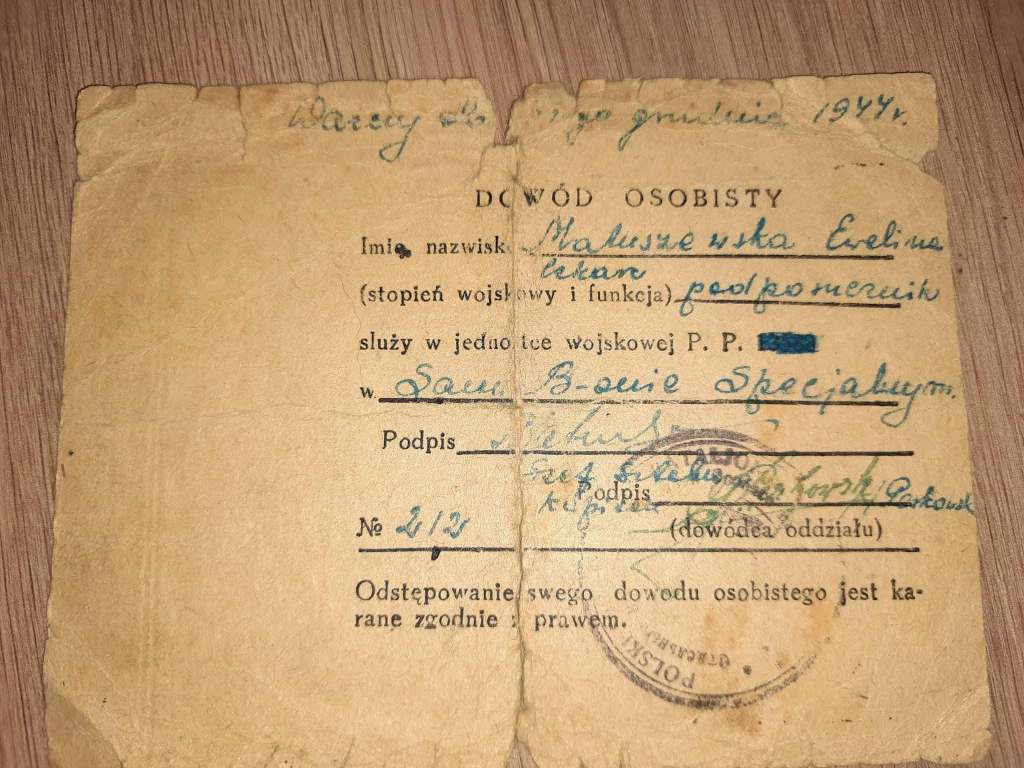 grudnia 1944r.
DOWÓD OSOBISTY
Imię, nazwisk Matuszewska Ewelina
lekarz
(stopień wojskowy i funkcja) podporucznik
służy w jednostce wojskowej P. P.
w Sam. B-onie Specjalnym.
Podpis
Szef Sztabu
Kapitan
Podpis
№ 212 (dowódca oddziału)
Odstępowanie swego dowodu osobistego jest ka-
rane zgodnie z prawem.
POLSKI